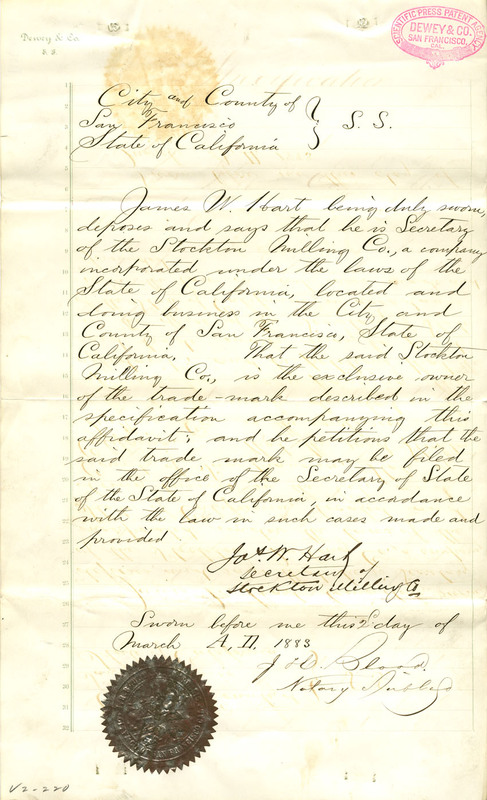 Dewey & Co.
S. F.
SCIENTIFIC PRESS PATENT AGENCY
DEWEY & CO.
SAN FRANCISCO,
CAL.
City and County of
San Francisco } S. S.
State of California
James W. Hart being duly sworn,
deposes and says that he is Secretary
of the Stockton Milling Co., a company
incorporated under the laws of the
State of California, located and
doing business in the City and
County of San Francisco, State of
California. That the said Stockton
Milling Co., is the exclusive owner
of the trade-mark described in the
specification accompanying this
affidavit; and he petitions that the
said trade mark may be filed
in the office of the Secretary of State
of the State of California, in accordance
with the law in such cases made and
provided
Jas. W. Hart
Secretary of
Stockton Milling Co
Sworn before me this 2d day of
March A. D. 1883
Blood.
Notary Public
V2-220